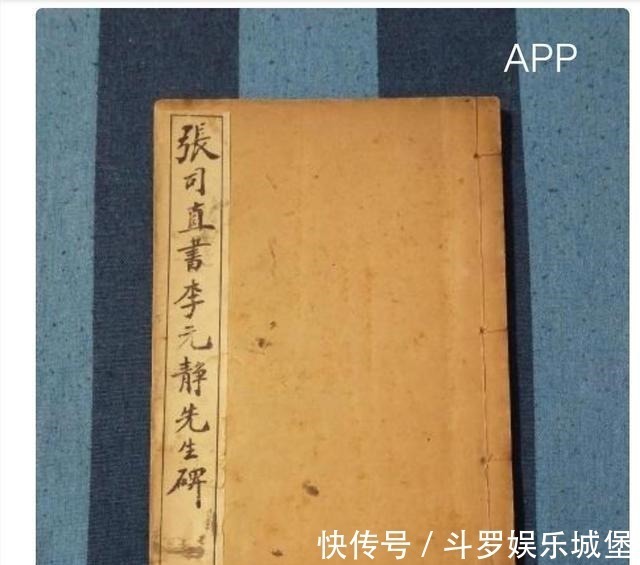 APP
張司直書李元静先生碑
快传号 / 斗罗娱乐城堡